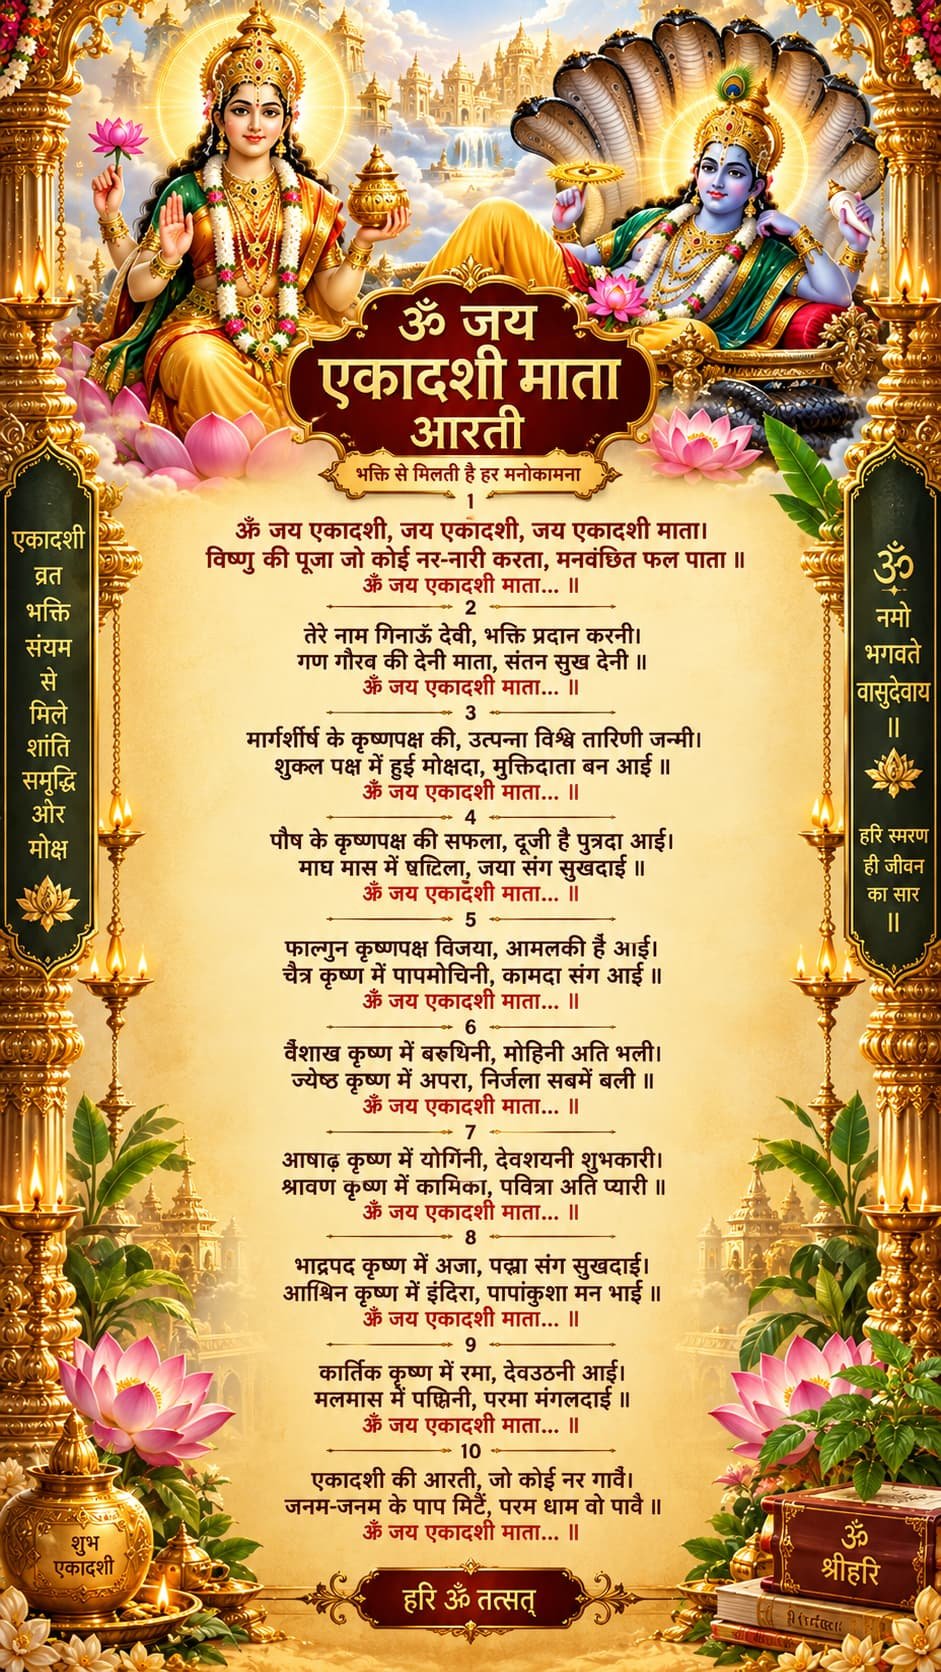 ॐ जय
एकादशी माता
आरती
भक्ति से मिलती है हर मनोकामना
1
ॐ जय एकादशी, जय एकादशी, जय एकादशी माता।
विष्णु की पूजा जो कोई नर-नारी करता, मनवंछित फल पाता ॥
ॐ जय एकादशी माता... ॥
2
तेरे नाम गिनाऊँ देवी, भक्ति प्रदान करनी।
गण गौरव की देनी माता, संतन सुख देनी ॥
ॐ जय एकादशी माता... ॥
3
के कृष्णपक्ष की, उत्पन्ना तारिणी जन्मी।
शुकल पक्ष में हुई मोक्षदा, मुक्तिदाता बन आई ॥
ॐ जय एकादशी माता... ॥
4
पौष के कृष्णपक्ष की सफला, दूजी है पुत्रदा आई।
माघ मास में जया संग सुखदाई ॥
ॐ जय एकादशी माता... ॥
5
फाल्गुन कृष्णपक्ष विजया, आमलकी है आई।
चैत्र कृष्ण में पापमोचिनी, कामदा संग आई ॥
ॐ जय एकादशी माता... ॥
6
वैशाख कृष्ण में बरुथिनी, मोहिनी अति भली।
ज्येष्ठ कृष्ण में अपरा, निर्जला सबमें बली ॥
ॐ जय एकादशी माता... ॥
7
आषाढ़ कृष्ण में योगिनी, देवशयनी शुभकारी।
श्रावण कृष्ण में कामिका, पवित्रा अति प्यारी ॥
ॐ जय एकादशी माता... ॥
8
भाद्रपद कृष्ण में अजा, संग सुखदाई।
आश्विन कृष्ण में इंदिरा, पापांकुशा मन भाई ॥
ॐ जय एकादशी माता... ॥
9
कार्तिक कृष्ण में रमा, देवउठनी आई।
मलमास में परमा मंगलदाई ॥
ॐ जय एकादशी माता... ॥
10
एकादशी की आरती, जो कोई नर गावैं।
जनम-जनम के पाप मिटैं, परम धाम वो पावै ॥
ॐ जय एकादशी माता... ॥
हरि ॐ तत्सत्
एकादशी
व्रत
भक्ति
संयम
से
मिले
शांति
समृद्धि
ओर
मोक्ष
ॐ
नमो
भगवते
वासुदेवाय
॥
हरि स्मरण
ही जीवन
का सार
॥
शुभ
एकादशी
ॐ
श्रीहरि